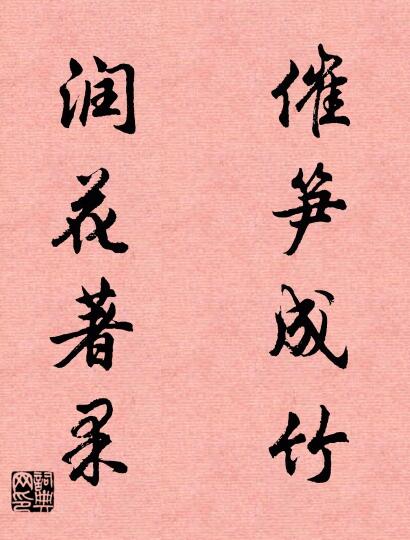 催笋成竹
润花著果
詞典網印